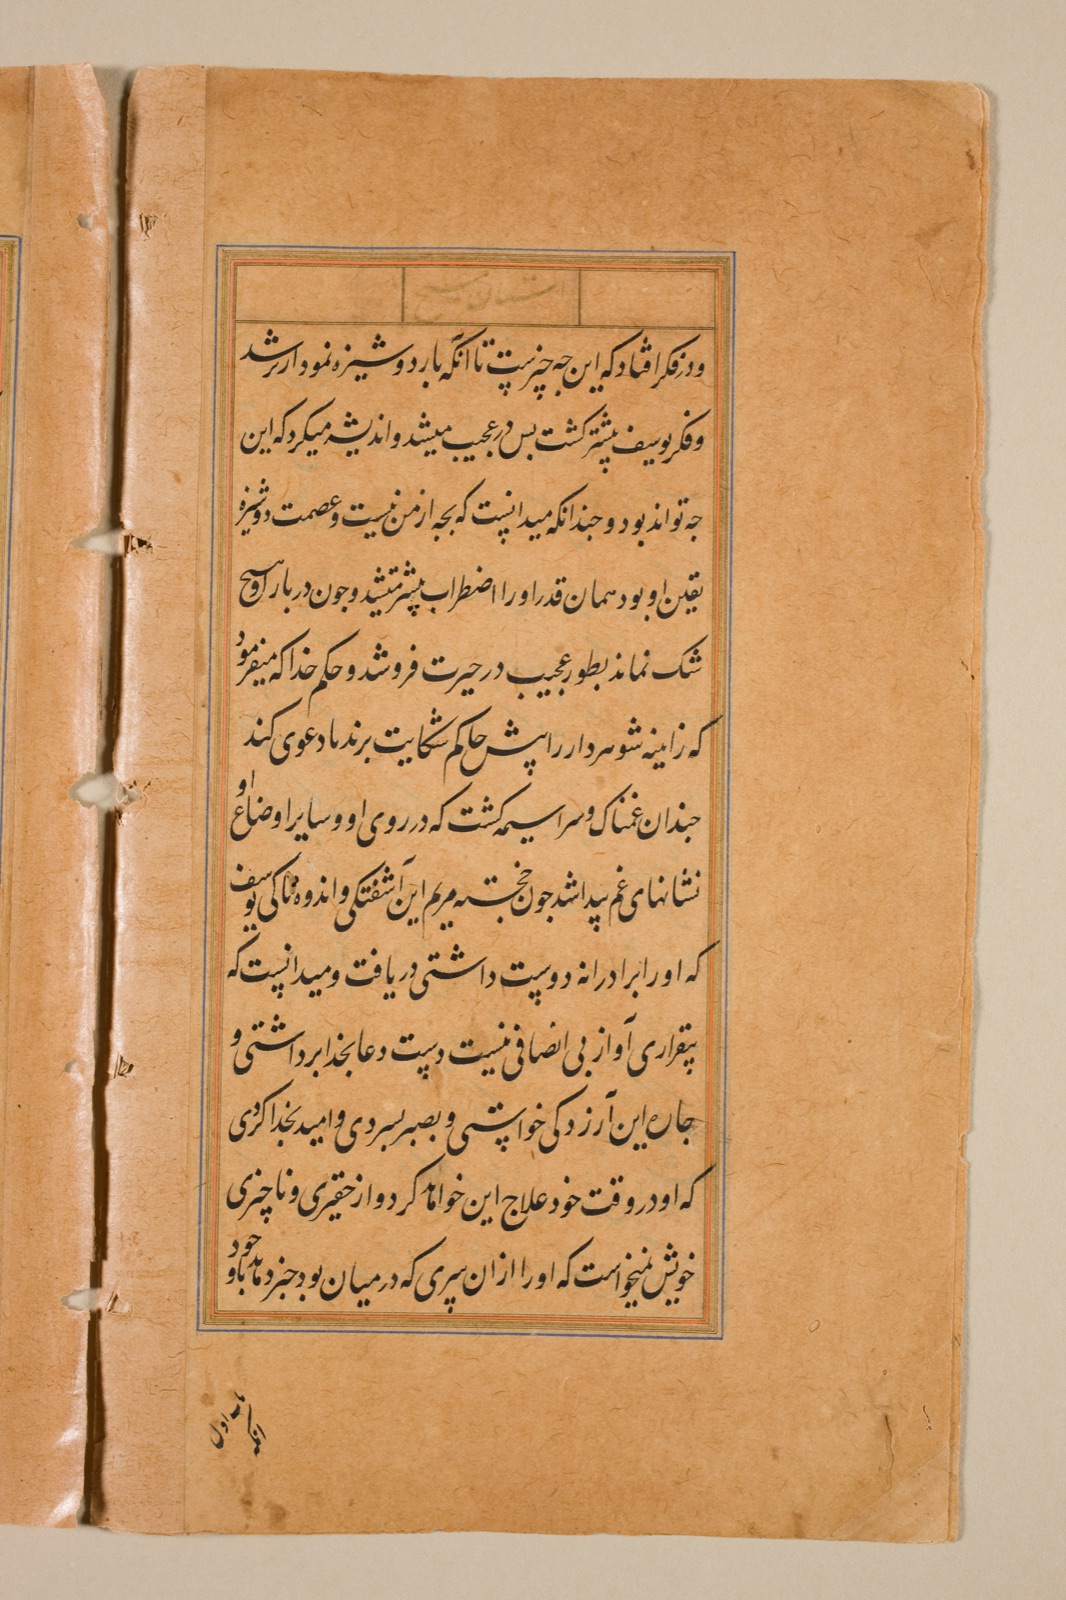 داستان مسیح
و در فکر افتاد که این جه چیزست تا آنکه بار دوشیزه نمودارتر شد
و فکر یوسف پیشتر کشت بس در عجیب میشد و اندیشه میکرد که این
جه تواند بود و جندانکه میدانست که بجه از من نیست و عصمت دوشیزه
یقین او بود همان قدر او را اضطراب پیشتر میشد و جون در بارداری هیچ
شک نماند بطور عجیب در حیرت فرو شد و حکم خدا که میفرمود
که زانیه شوهردار را پیش حاکم شکایت برند با دعوی کند
جندان غمناک و سراسیمه کشت که در روی او و سایر اوضاع او
نشانهای غم پیدا شد جون خجسته مریم این آشفتکی و اندوه ناکی یوسف
که او را برادرانه دوست داشتی دریافت و میدانست که
بیقراری آو از بی انصافی نیست دست دعا بخدا برداشتی و
جاره این آرزدکی خواستی و بصبر بسردی و امید بخدا کردی
که او در وقت خود علاج این خواهد کرد و از حقیری و ناچیزی
خویش نمیخواست که او را از ان سری که در میان بود خبر دهد با وجود
آنکه اول